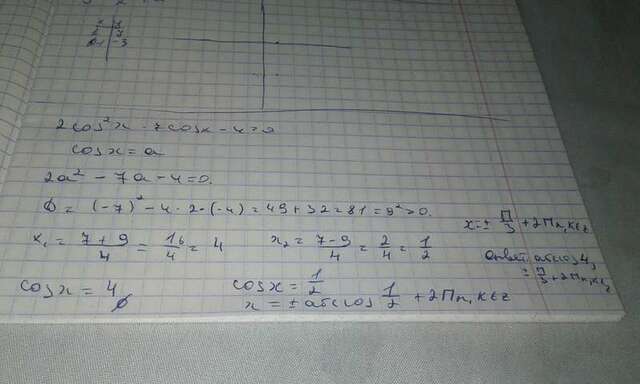 x | y
2 | 7
0 | -3
2cos²x - 7cosx - 4 = 0
cosx = a
2a² - 7a - 4 = 0.
D = (-7)² - 4 · 2 · (-4) = 49 + 32 = 81 = 9² > 0.
x₁ = (7 + 9)/4 = 16/4 = 4    x₂ = (7 - 9)/4 = 2/4 = 1/2
cosx = 4    cosx = 1/2
∅    x = ± arccos 1/2 + 2Πn, k∈z
x = ± Π/3 + 2Πn, k∈z
Ответ: arccos 4,
± Π/3 + 2Πn, k∈z